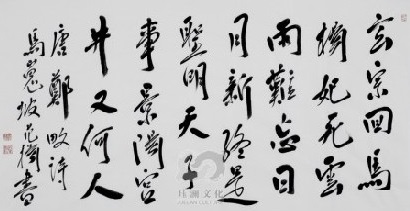 玄宗回馬
楊妃死雲
雨難忘日
月新終是
聖明天子
事景陽宮
井又何人
唐鄭畋詩
馬嵬坡書
文化